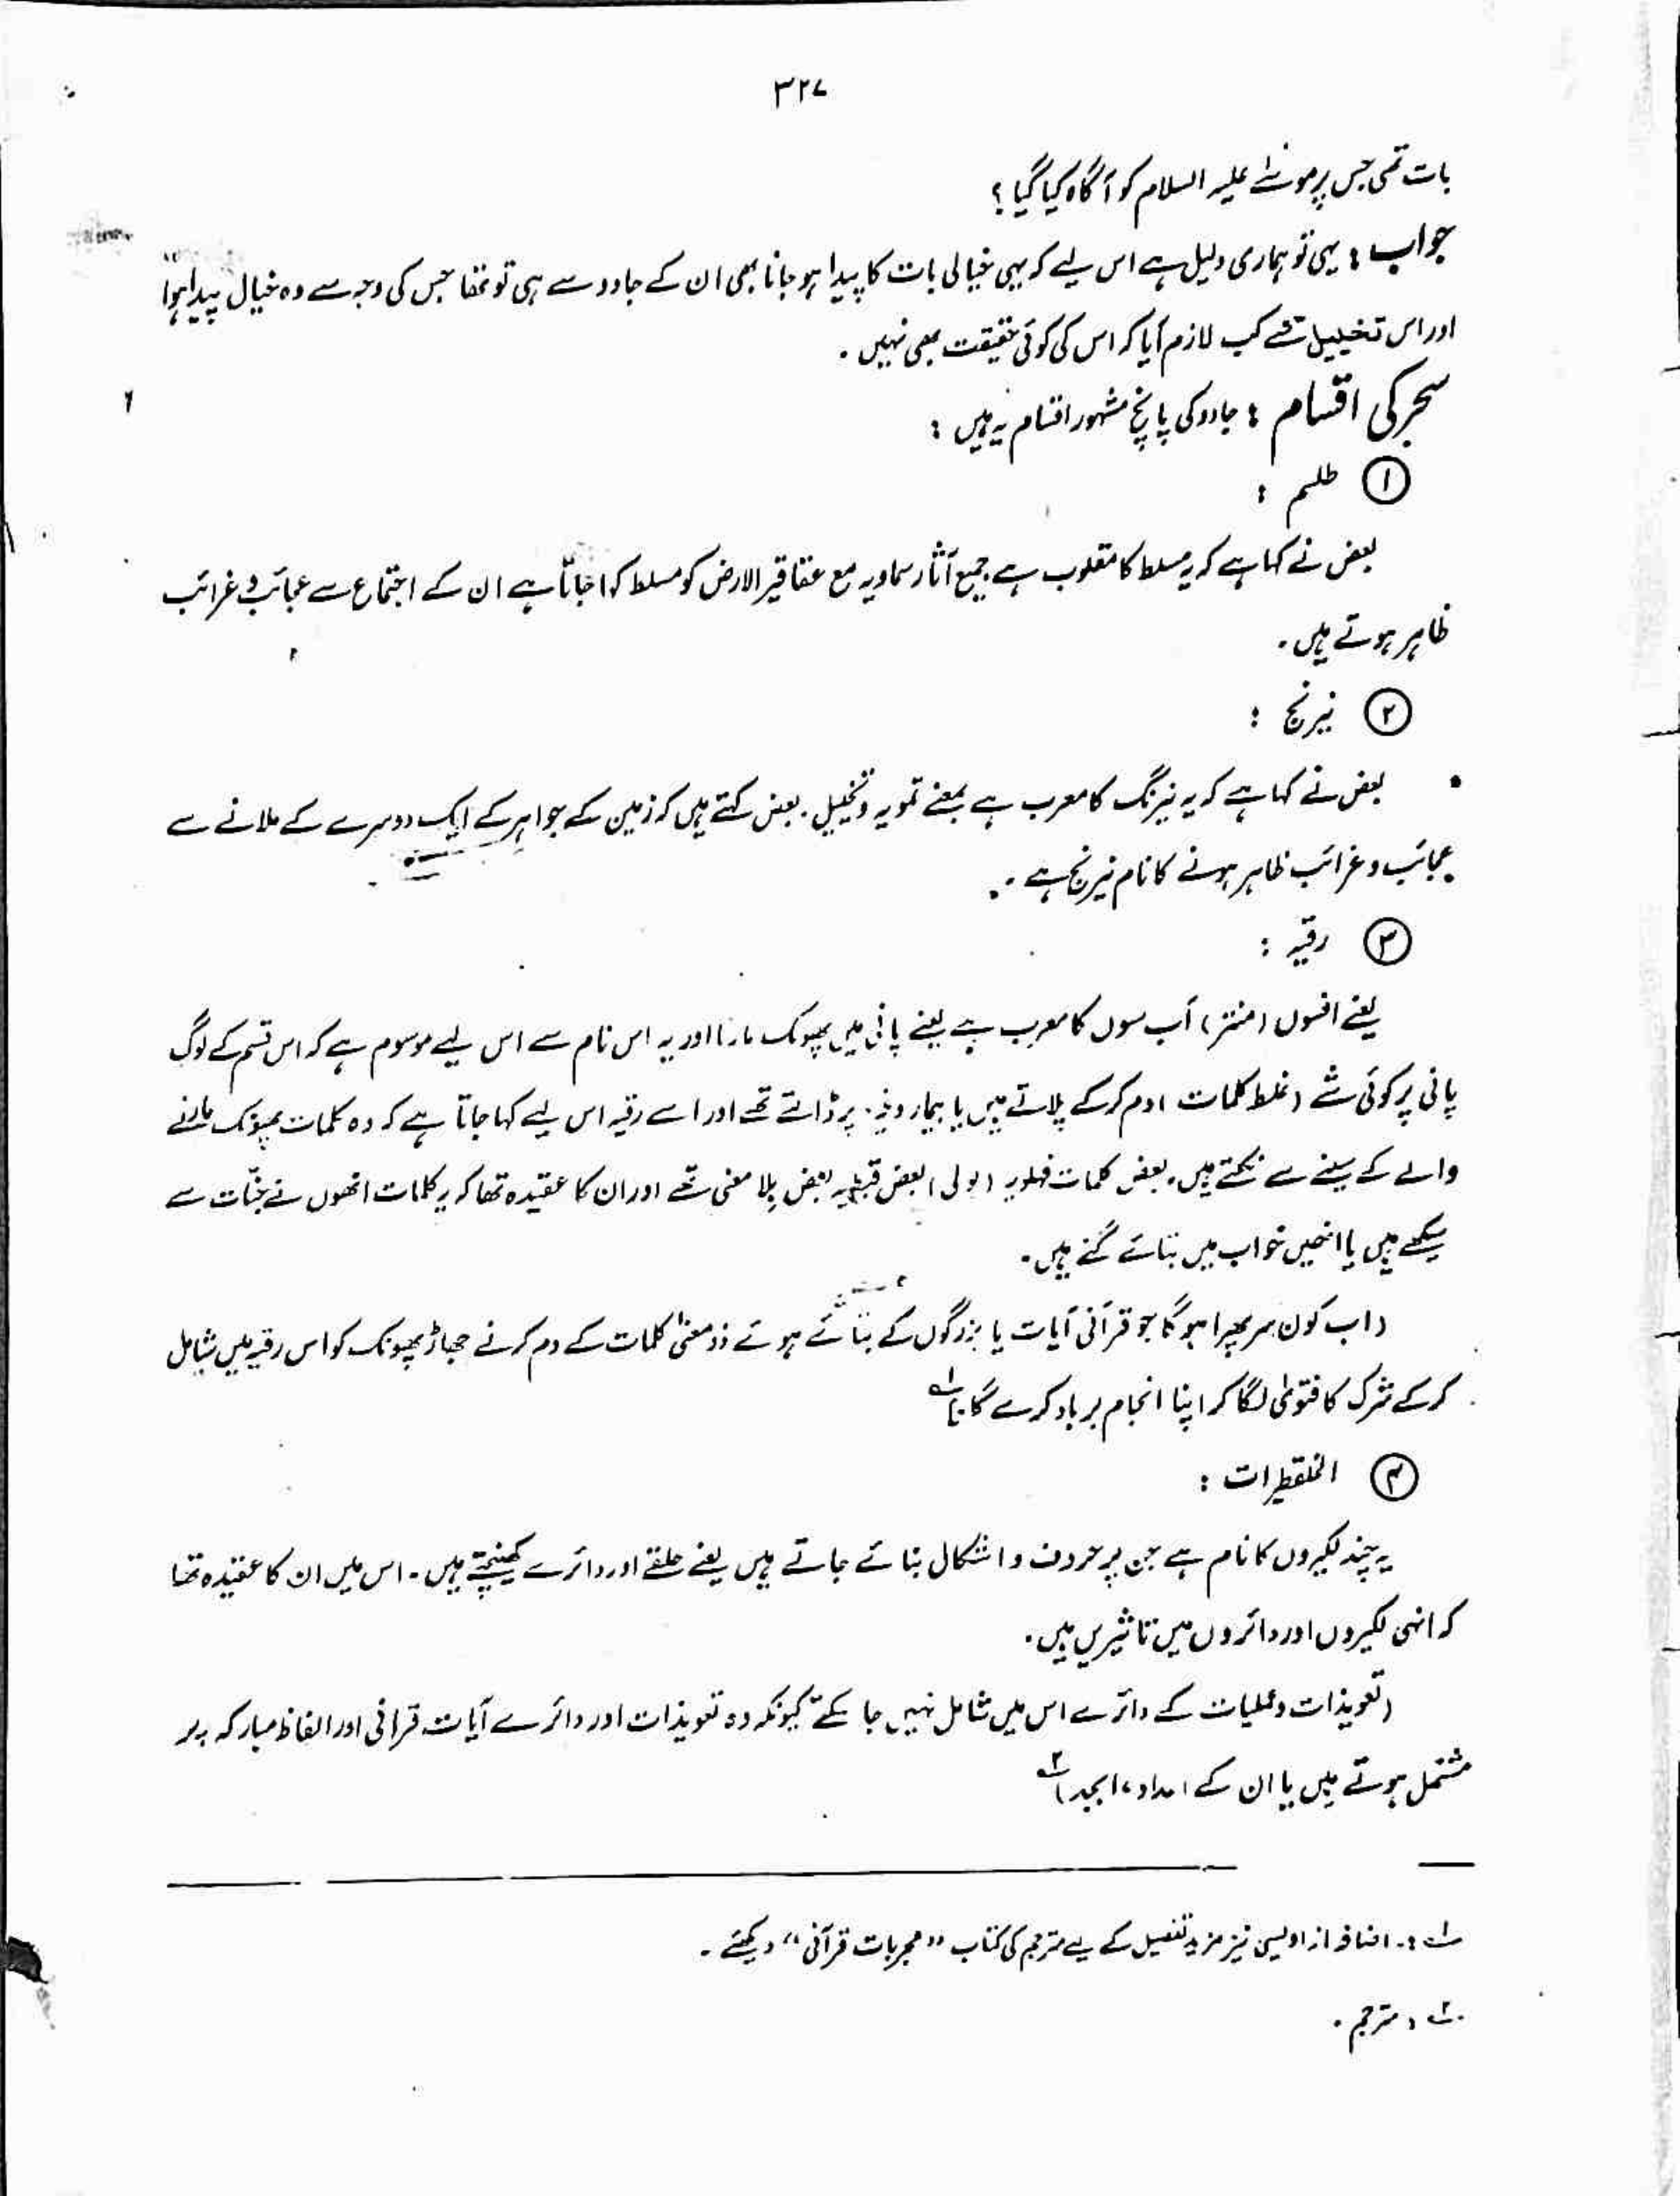 ۳۲۷
بات تھی جس پر موسٰے علیہ السلام کو آگاہ کیا گیا ؟
جواب : یہی تو ہماری دلیل ہے اس لیے کہ یہی خیالی بات کا پیدا ہو جانا بھی ان کے جادو سے ہی تو تھا جس کی وجہ سے وہ خیال پیدا ہوا
اور اس تخییل سے کب لازم آیا کہ اس کی کوئی حقیقت بھی نہیں ۔
سحر کی اقسام : جادو کی پانچ مشہور اقسام یہ ہیں :
① طلسم :
بعض نے کہا ہے کہ یہ مسلط کا مقلوب ہے جمیع آثار سماویہ مع عقاقیر الارض کو مسلط کہا جاتا ہے ان کے اجتماع سے عجائب و غرائب
ظاہر ہوتے ہیں ۔
② نیرنج :
بعض نے کہا ہے کہ یہ نیرنگ کا معرب ہے بمعنے تمویہ و تخییل ۔ بعض کہتے ہیں کہ زمین کے جواہر کے ایک دوسرے کے ملانے سے
عجائب و غرائب ظاہر ہونے کا نام نیرنج ہے ۔
③ رقیہ :
یعنے افسوں (منتر) آب سوں کا معرب ہے یعنے پانی میں پھونک مارنا اور یہ اس نام سے اس لیے موسوم ہے کہ اس قسم کے لوگ
پانی پر کوئی شے (غلط کلمات) دم کر کے پلاتے ہیں یا بیمار پر ڈالتے تھے اور اسے رقیہ اس لیے کہا جاتا ہے کہ وہ کلمات پھونک مارنے
والے کے سینے سے نکلتے ہیں ۔ بعض کلمات فہلویہ (بولی) بعض قبطیہ بعض بلا معنی تھے اور ان کا عقیدہ تھا کہ یہ کلمات انھوں نے جنّات سے
سیکھے ہیں یا انھیں خواب میں بتائے گئے ہیں ۔
(اب کون سر پھرا ہو گا جو قرآنی آیات یا بزرگوں کے بتائے ہوئے ذو معنیٰ کلمات کے دم کرنے جھاڑ پھونک کو اس رقیہ میں شامل
کر کے شرک کا فتویٰ لگا کر اپنا انجام برباد کرے گا )؎۱
④ الخلقطیرات :
یہ چند لکیروں کا نام ہے جن پر حروف و اشکال بنائے جاتے ہیں یعنے حلقے اور دائرے کھینچتے ہیں ۔ اس میں ان کا عقیدہ تھا
کہ انہی لکیروں اور دائروں میں تاثیریں ہیں ۔
(تعویذات و عملیات کے دائرے اس میں شامل نہیں جا سکتے کیونکہ وہ تعویذات اور دائرے آیات قرآنی اور الفاظ مبارکہ پر
مشتمل ہوتے ہیں یا ان کے اعداد ، ابجد )؎۲
؎۱ :۔ اضافہ از اویسی نیز مزید تفصیل کے لیے مترجم کی کتاب "مجربات قرآنی" دیکھئے ۔
؎۲ : مترجم ۔